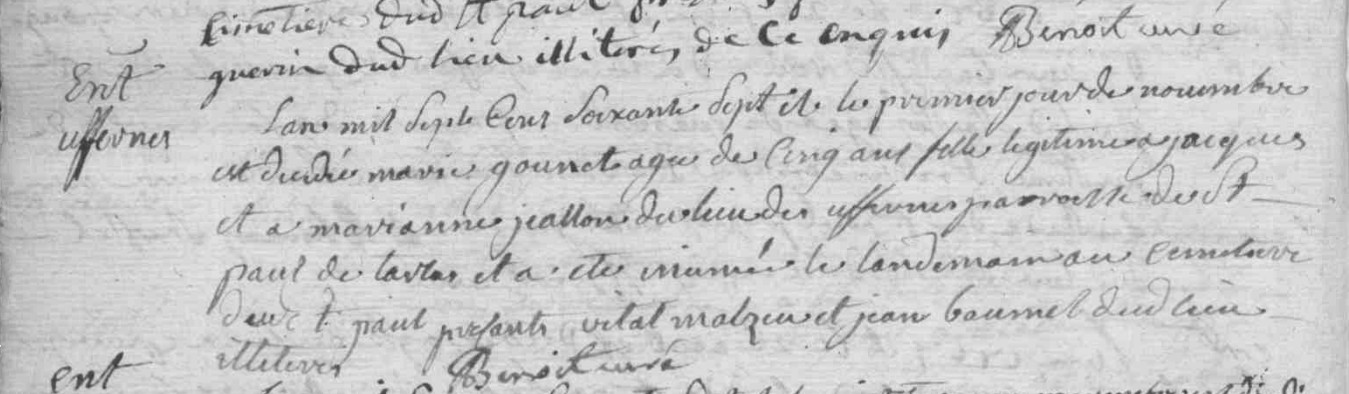 cimetiere dud St paul
guerin dud lieu illiterés de ce enquis Benoit curé
Ent
uffernes
Lan mil sept cens soixante sept et le premier jour de novembre
est decedée marie gounet agée de cinq ans fille legitime a jacques
et a marianne jeallon du lieu des uffernes parroisse de St
paul de tartas et a été inumée le landemain au cimetiere
dud St paul presants vital malzieu et jean baumel dud lieu
illiterés Benoit curé
ent